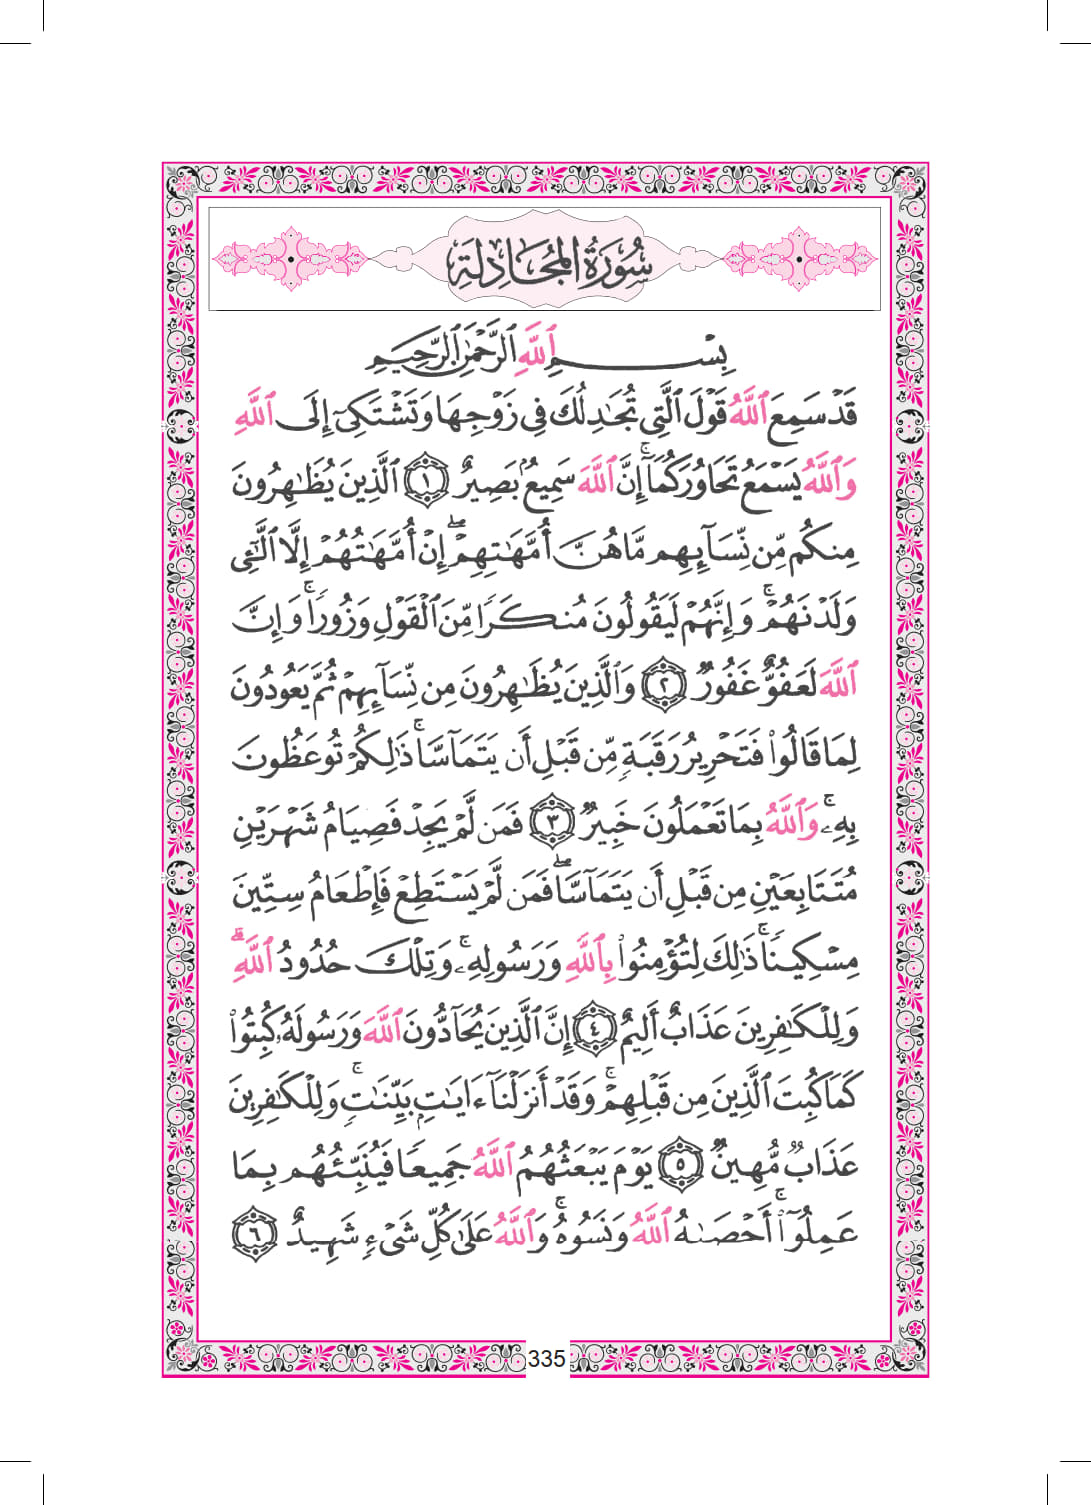 سُورَةُ المُجَادلَةِ
بِسْمِ ٱللَّهِ ٱلرَّحْمَٰنِ ٱلرَّحِيمِ
قَدْ سَمِعَ ٱللَّهُ قَوْلَ ٱلَّتِى تُجَٰدِلُكَ فِى زَوْجِهَا وَتَشْتَكِىٓ إِلَى ٱللَّهِ
وَٱللَّهُ يَسْمَعُ تَحَاوُرَكُمَآ ۚ إِنَّ ٱللَّهَ سَمِيعٌۢ بَصِيرٌ ١ ٱلَّذِينَ يُظَٰهِرُونَ
مِنكُم مِّن نِّسَآئِهِم مَّا هُنَّ أُمَّهَٰتِهِمْ ۖ إِنْ أُمَّهَٰتُهُمْ إِلَّا ٱلَّٰٓـِٔى
وَلَدْنَهُمْ ۚ وَإِنَّهُمْ لَيَقُولُونَ مُنكَرًا مِّنَ ٱلْقَوْلِ وَزُورًا ۚ وَإِنَّ
ٱللَّهَ لَعَفُوٌّ غَفُورٌ ٢ وَٱلَّذِينَ يُظَٰهِرُونَ مِن نِّسَآئِهِمْ ثُمَّ يَعُودُونَ
لِمَا قَالُوا۟ فَتَحْرِيرُ رَقَبَةٍ مِّن قَبْلِ أَن يَتَمَآسَّا ۚ ذَٰلِكُمْ تُوعَظُونَ
بِهِۦ ۚ وَٱللَّهُ بِمَا تَعْمَلُونَ خَبِيرٌ ٣ فَمَن لَّمْ يَجِدْ فَصِيَامُ شَهْرَيْنِ
مُتَتَابِعَيْنِ مِن قَبْلِ أَن يَتَمَآسَّا ۖ فَمَن لَّمْ يَسْتَطِعْ فَإِطْعَامُ سِتِّينَ
مِسْكِينًا ۚ ذَٰلِكَ لِتُؤْمِنُوا۟ بِٱللَّهِ وَرَسُولِهِۦ ۚ وَتِلْكَ حُدُودُ ٱللَّهِ ۗ
وَلِلْكَٰفِرِينَ عَذَابٌ أَلِيمٌ ٤ إِنَّ ٱلَّذِينَ يُحَآدُّونَ ٱللَّهَ وَرَسُولَهُۥ كُبِتُوا۟
كَمَا كُبِتَ ٱلَّذِينَ مِن قَبْلِهِمْ ۚ وَقَدْ أَنزَلْنَآ ءَايَٰتٍۭ بَيِّنَٰتٍ ۚ وَلِلْكَٰفِرِينَ
عَذَابٌ مُّهِينٌ ٥ يَوْمَ يَبْعَثُهُمُ ٱللَّهُ جَمِيعًا فَيُنَبِّئُهُم بِمَا
عَمِلُوٓا۟ ۚ أَحْصَىٰهُ ٱللَّهُ وَنَسُوهُ ۚ وَٱللَّهُ عَلَىٰ كُلِّ شَىْءٍ شَهِيدٌ ٦
335